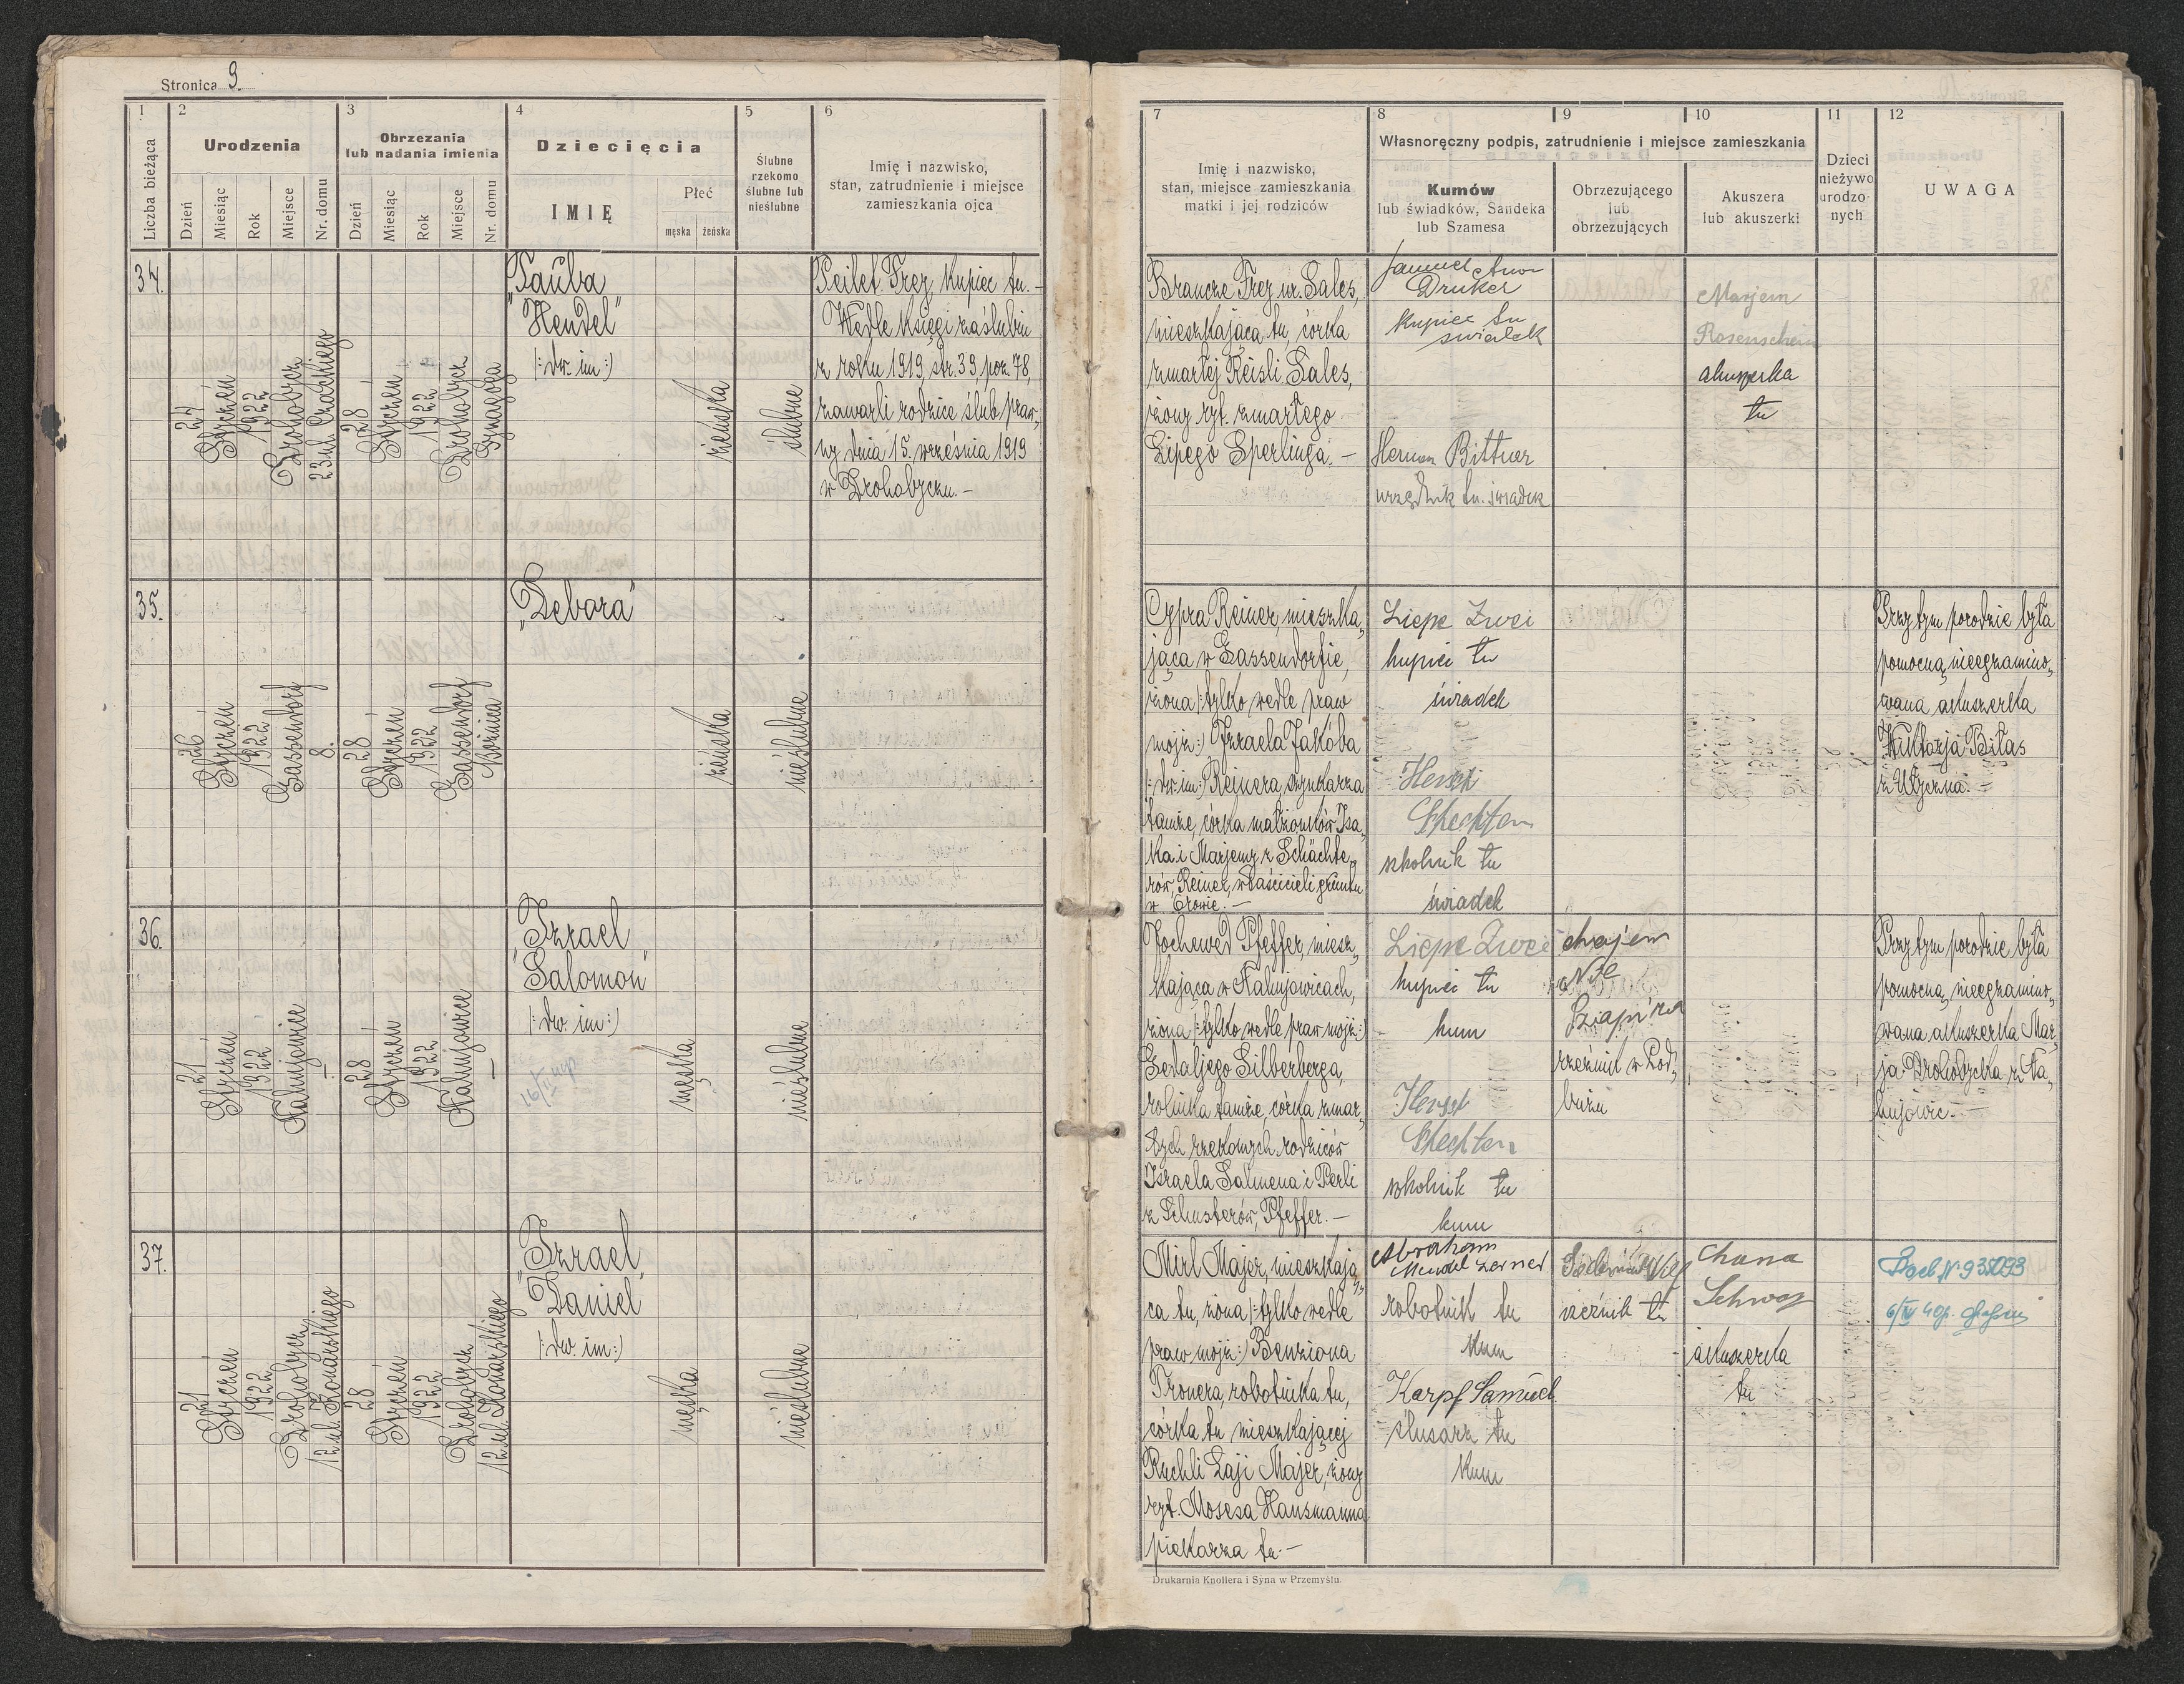 Stronica 9.
1
2
3
4
5
6
Liczba bieżąca
Urodzenia
Obrzezania
lub nadania imienia
Dziecięcia
Ślubne
rzekomo
ślubne lub
nieślubne
Imię i nazwisko,
stan, zatrudnienie i miejsce
zamieszkania ojca
Dzień
Miesiąc
Rok
Miejsce
Nr. domu
Dzień
Miesiąc
Rok
Miejsce
Nr. domu
IMIĘ
Płeć
męska
żeńska
34.
24
Styczeń
1922
Drohobycz
23 ul. Czackiego
28
Styczeń
1922
Drohobycz
Synagoga
"Tauba
Hendel"
(: dw. im :)
żeńska
ślubne
Frez, kupiec tu. -
Wedle księgi zaślubin
z roku 1919, str. 39, poz. 78,
zawarli rodzice ślub praw„
ny dnia 15. września 1919
w Drohobyczu. -
35.
26
Styczeń
1922
Gassendorf
8.
28
Styczeń
1922
Gassendorf
Bóżnica
"Debora"
żeńska
nieślubne
36.
21
Styczeń
1922
Kahujowice
-
28
Styczeń
1922
Kahujowice
-
"Izrael
Salomon"
(: dw. im :)
16/II
męska
nieślubne
37.
21
Styczeń
1922
Drohobycz
12 ul. Konarskiego
28
Styczeń
1922
Drohobycz
12 ul. Konarskiego
"Izrael
Daniel"
(: dw. im :)
męska
nieślubne
7
8
9
10
11
12
Imię i nazwisko,
stan, miejsce zamieszkania
matki i jej rodziców
Własnoręczny podpis, zatrudnienie i miejsce zamieszkania
Kumów
lub świadków, Sandeka
lub Szamesa
Obrzezującego
lub
obrzezujących
Akuszera
lub akuszerki
Dzieci
nieżywo
urodzo-
nych
UWAGA
Frez ur. Sales,
mieszkająca tu, córka
zmarłej Reisli Sales,
żony ryt. zmarłego
Lipego Sperlinga. -
Druker
kupiec tu
świadek
Herman Bittner
urzędnik tu. świadek
Marjem
Rosenschein
akuszerka
tu
Cypra Reiner, mieszka„
jąca w Gassendorfie,
żona (: tylko wedle praw
mojż :) Izraela Jakóba
(: dw. im :) Reinera, szynkarza
tamże, córka małżonków Iza„
ka i Marjemy z Schächte„
rów, Reiner, właścicieli gruntu
w Orowie. -
Liepe Zwei
kupiec tu
świadek
Hersch
Schechter
szkolnik tu
świadek
Przy tym porodzie była
pomocną nieegzamino„
wana akuszerka
Wiktorja Bilas
z Uliczna. -
Jochewed Pfeffer, miesz„
kająca w Kahujowicach,
żona (: tylko wedle praw mojż :)
Gedaljego Silberberga,
rolnika tamże, córka zmar„
łych rzekomych rodziców
Izraela Salmena i Perli
z Schusterów, Pfeffer. -
Liepe Zwei
kupiec tu
kum
Hersch
Schechter
szkolnik tu
kum
chajem
Szapira
rzeźnik w Pod„
bużu
Przy tym porodzie była
pomocną nieegzamino„
wana akuszerka Mar„
ja Drohobycka z Ka„
hujowic. -
Mirl Majer, mieszkają„
ca tu, żona (: tylko wedle
praw mojż :) Benziona
Tronera, robotnika tu,
córka tu mieszkającej
Ruchli Laji Majer, żony
ryt. Mosesa Hausmanna
piekarza tu. -
Abraham
Mendel Lerner
robotnik tu
kum
Karpf Samuel
ślusarz tu
kum
rzeźnik tu
Chana
Schwarz
akuszerka
tu
6/IV 40r.
Drukarnia Knollera i Syna w Przemyślu.